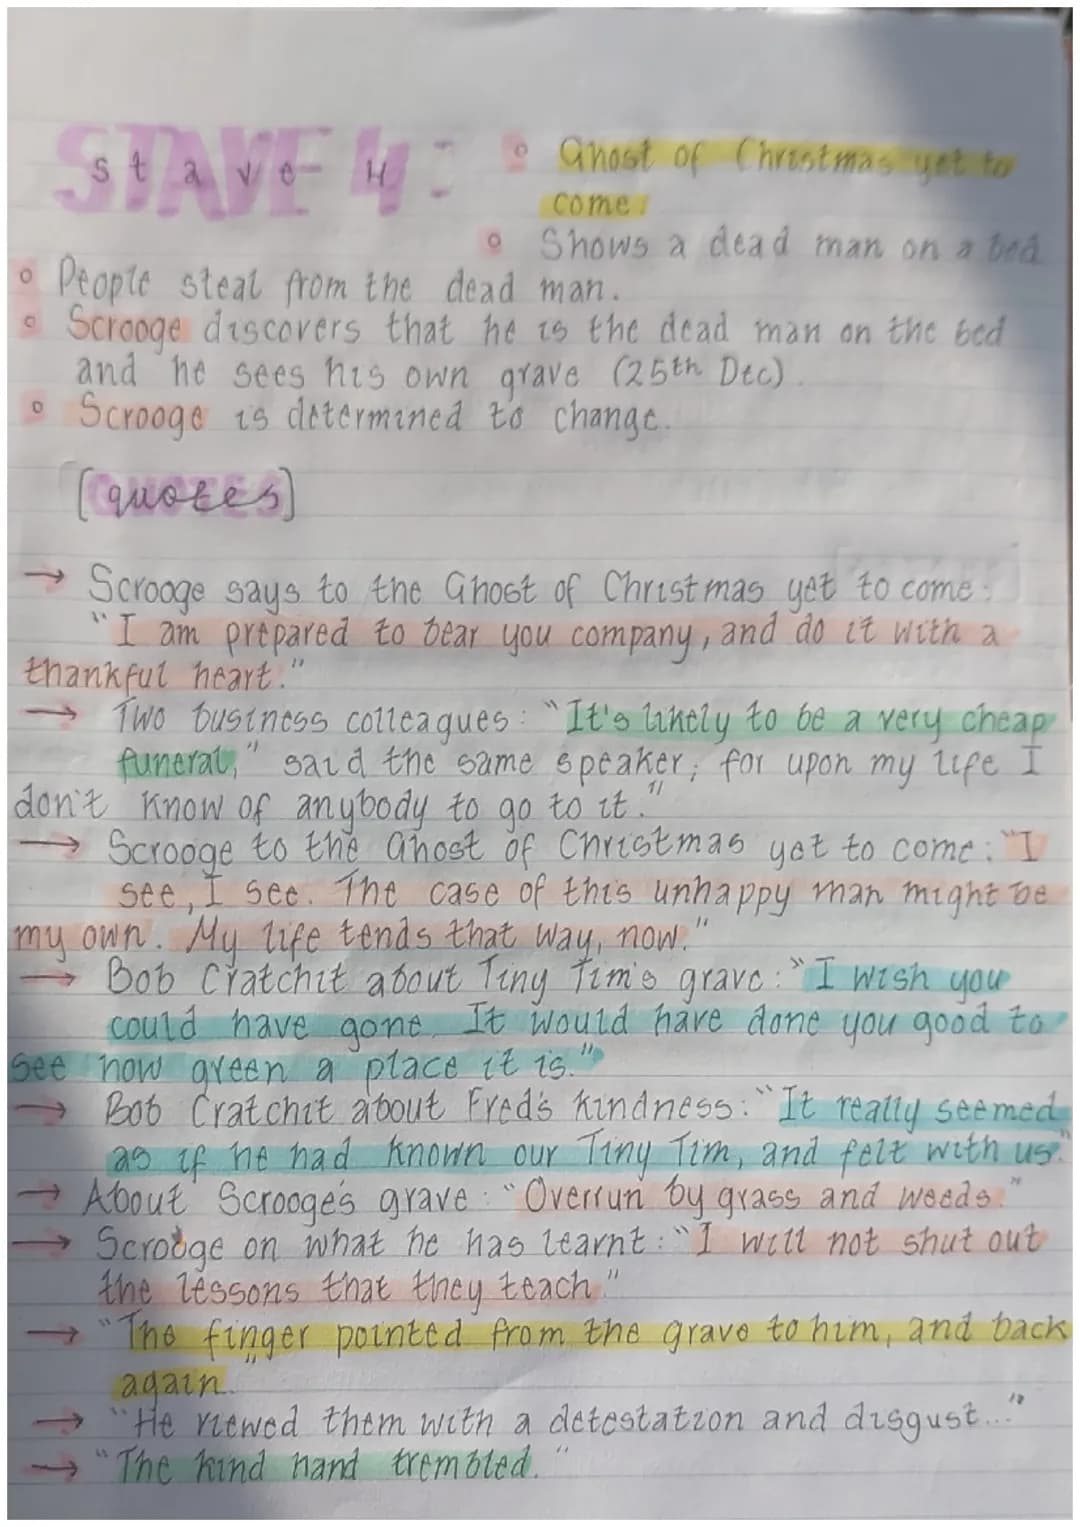 STAVE 4:
stave 4
Ghost of Christmas yet to
come
Shows a dead man on a bed
People steal from the dead man.
Scrooge discovers that he is the dead man on the bed
and he sees his own grave (25th Dec).
Scrooge is determined to change.
[quotes]
→ Scrooge says to the Ghost of Christmas yet to come:
"I am prepared to bear you company, and do it with a
thankful heart."
→ Two business colleagues: "It's likely to be a very cheap
funeral," said the same speaker; for upon my life I
don't know of anybody to go to it."
→ Scrooge to the Ghost of Christmas yet to come: "I
see, I see. The case of this unhappy man might be
my own. My life tends that way, now."
→ Bob Cratchit about Tiny Tim's grave: "I wish you
could have gone. It would have done you good to
see how green a place it is."
→ Bob Cratchit about Fred's kindness: "It really seemed
as if he had known our Tiny Tim, and felt with us."
→ About Scrooge's grave: "Overrun by grass and weeds."
→ Scrooge on what he has learnt: "I will not shut out
the lessons that they teach."
→ "The finger pointed from the grave to him, and back
again."
→ "He viewed them with a detestation and disgust..."
→ "The kind hand trembled."